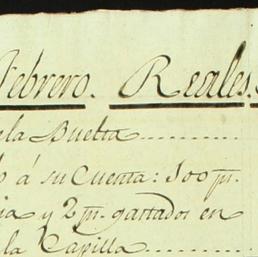 Febrero. Reales.
la Buelta
á su Cuenta: 100 p.
y 2 p. gastados en
la Capilla